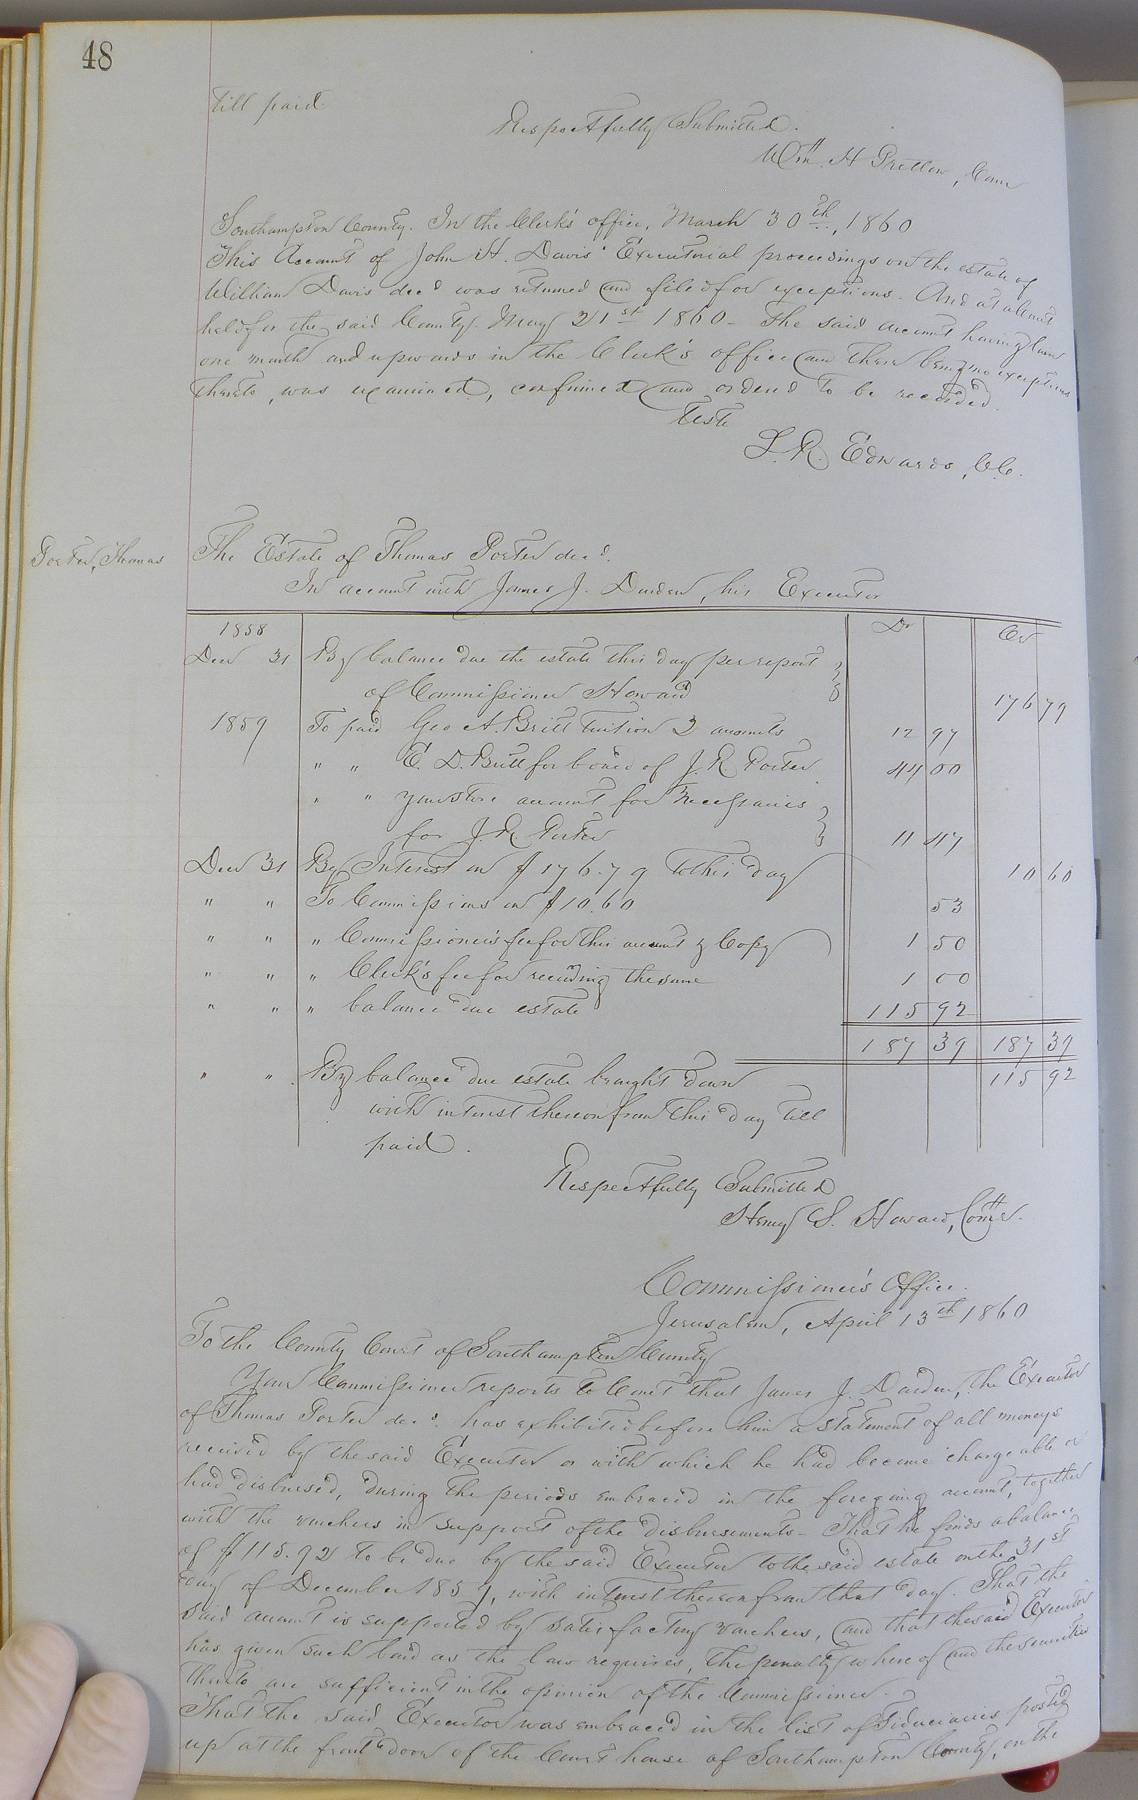 48
till paid
Respectfully Submitted.
Wm. H Pretlow, Com
Southampton County. In the Clerk's office, March 30th, 1860
This Account of John H. Davis' Executorial proceedings on the estate of
William Davis decd was returned and filed for exceptions. And at a Court
held for the said County May 21st 1860 - The said account having lain
one month and upwards in the Clerk's office and there being no exceptions
thereto, was examined, confirmed and ordered to be recorded.
Teste
L. R. Edwards, C.C.
Porter, Thomas
The Estate of Thomas Porter decd.
In account with James J. Darden, his Executor
1858 Dr Cr
Decr 31 By balance due the estate this day per report
of Commissioner Howard 176 79
1859 To paid Geo A. Britt tuition 2 accounts 12 97
" " E. D. Britt for board of J. R. Porter 44 00
" " your store account for necessaries
for J. R. Porter 11 47
Decr 31 By Interest on $176.79 to this day 10 60
" " To Commissions on $10.60 53
" " " Commissioner's fee for this account & Copy 1 50
" " " Clerk's fee for recording the same 1 00
" " " balance due estate 115 92
187 39 187 39
" " By balance due estate brought down 115 92
with interest thereon from this day till
paid.
Respectfully Submitted
Henry S. Howard, Comr.
Commissioner's Office.
Jerusalem, April 13th 1860
To the County Court of Southampton County
Your Commissioner reports to Court that James J. Darden, the Executor
of Thomas Porter decd. has exhibited before him a statement of all moneys
received by the said Executor or with which he had become chargeable or
had disbursed, during the periods embraced in the foregoing account, together
with the vouchers in support of the disbursements - That he finds a balance
of $115.92 to be due by the said Executor to the said estate on the 31st
day of December 1859, with interest thereon from that day. That the
said account is supported by satisfactory vouchers, and that the said Executor
has given such bond as the law requires, the penalty whereof and the securities
thereto are sufficient in the opinion of the Commissioner.
That the said Executor was embraced in the list of Fiduciaries posted
up at the front door of the Court house of Southampton County, on the